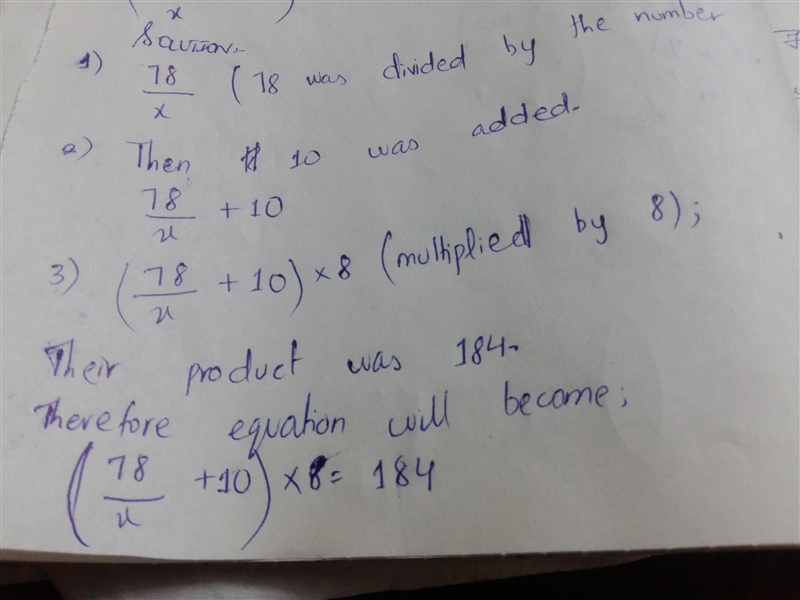 x
Solution:-
1) 78/x (78 was divided by the number
2) Then 10 was added.
78/x + 10
3) (78/x + 10) × 8 (multiplied by 8);
Their product was 184.
Therefore equation will become;
(78/x + 10) × 8 = 184